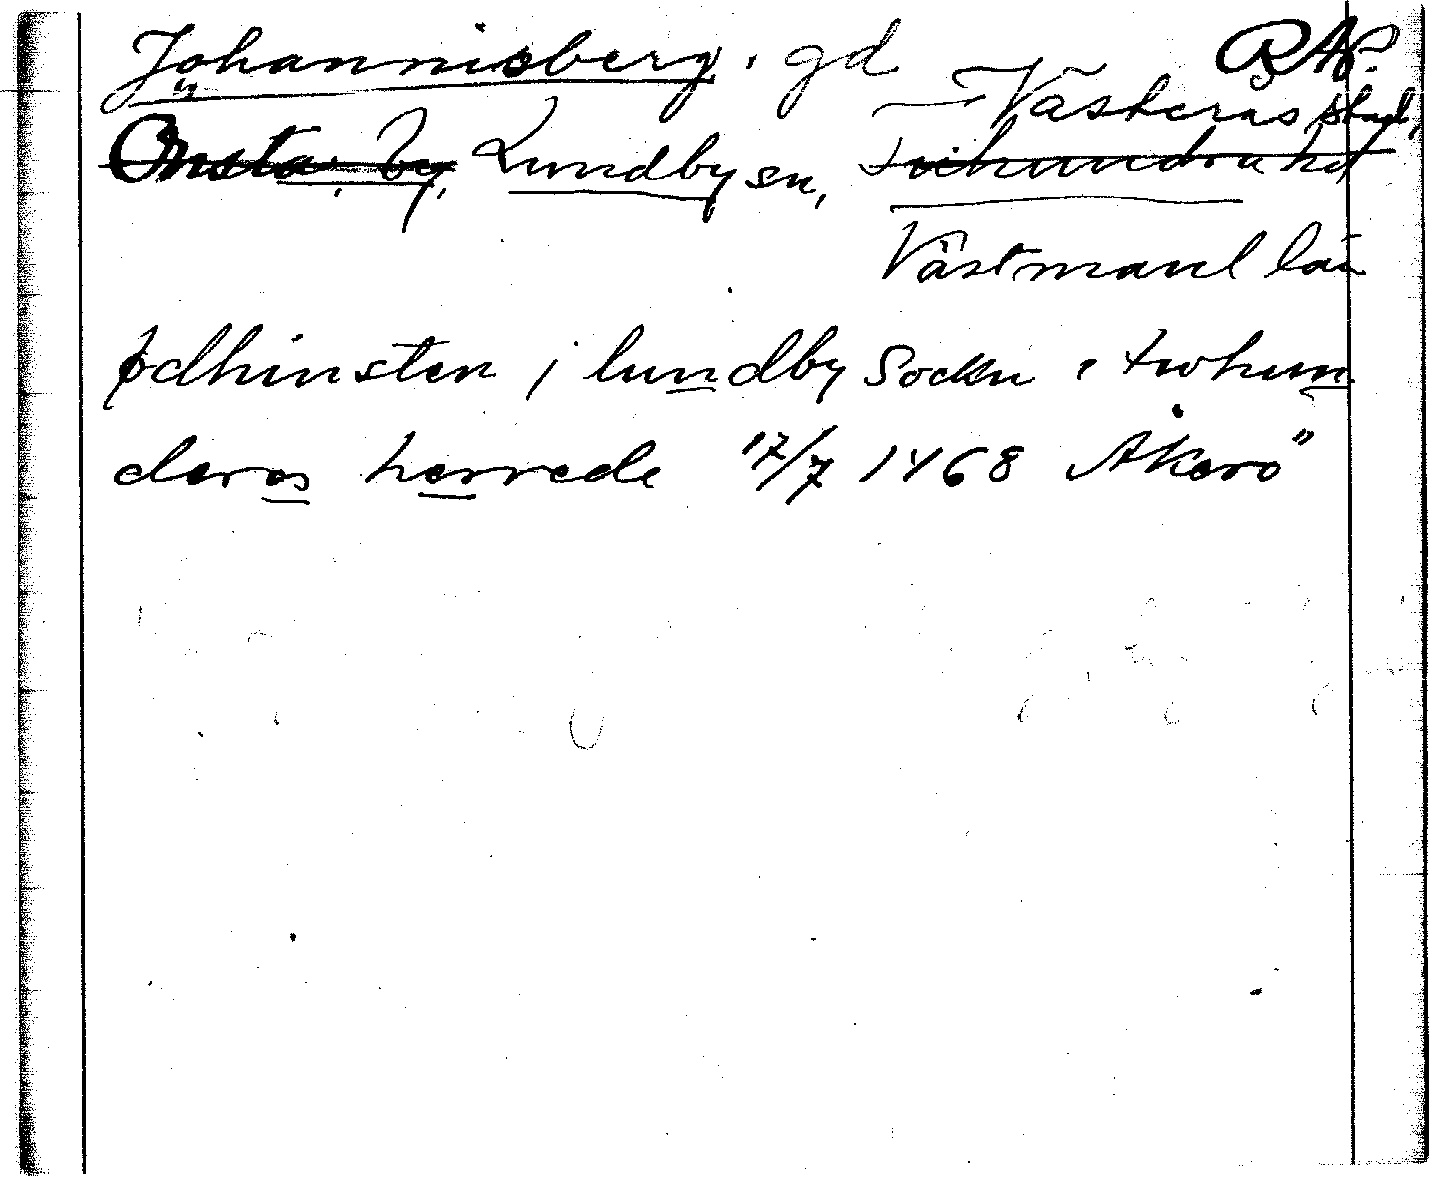 Johannisberg, gd RAP.
Västerås stad,
Önsta, by, Lundby sn, Tuhundra hd
Västmanl län
ødhinsten i lundby Sockn i twhun
deras herrede 17/7 1468 Åkerö"